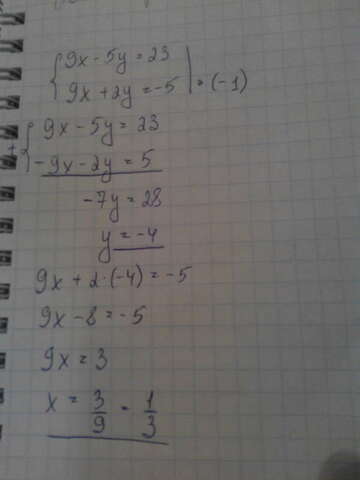 9x - 5y = 23
9x + 2y = -5 | = (-1)
+ 9x - 5y = 23
-9x - 2y = 5
-7y = 28
y = -4
9x + 2·(-4) = -5
9x - 8 = -5
9x = 3
x = 3/9 - 1/3